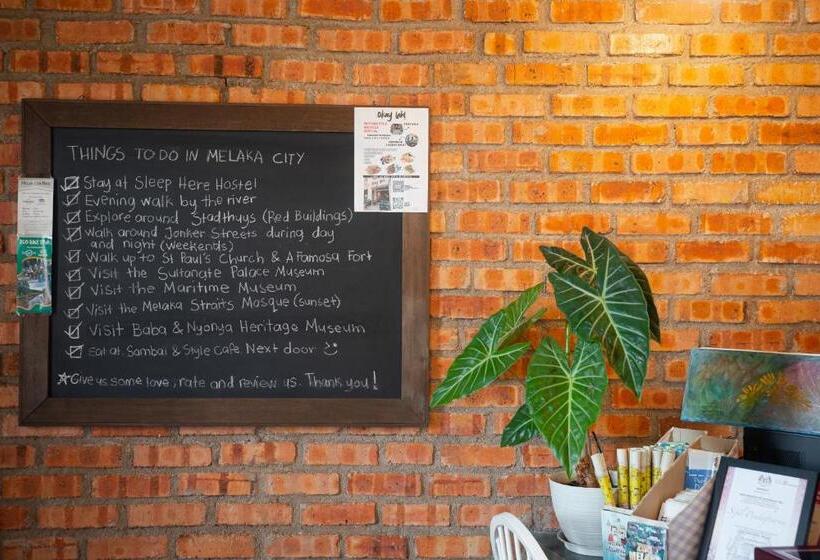 THINGS TO DO IN MELAKA CITY
Stay at Sleep Here Hostel
Evening walk by the river
Explore around Stadthuys (Red Buildings)
Walk around Jonker Streets during day
and night (weekends)
Walk up to St Paul's Church & A Famosa Fort
Visit the Sultanate Palace Museum
Visit the Maritime Museum
Visit the Melaka Straits Mosque (sunset)
Visit Baba & Nyonya Heritage Museum
Eat at Sambai & Style Cafe Next door
Give us some love, rate and review us. Thank you!